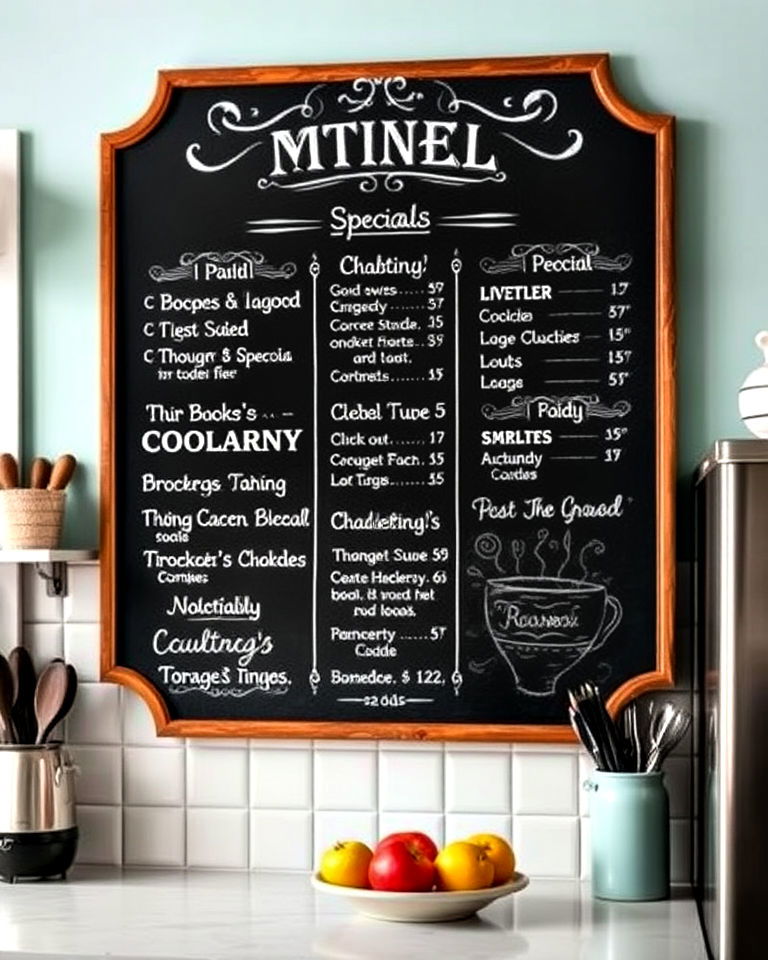 MTINEL
Specials
I Paidl
C Bocpes & Iagood
C Tlest Suled
C Thougr & Specola
Thir Books's
COOLARNY
Brockrgs Tahing
Thōng Cacen Blecall
soals
Tirockoir's Chokdes
Comnes
Nolctiably
Caultncg's
Torages Tinges.
Chabting!
Gold owes...... 39
Cmgedy...... 37
Corcee Stade. 35
and toot.
Cortnats...... 15
Clebel Tuve 5
Click out....... 17
Cocuget Foch. 35
Lot Turgs........ 35
Chadleting!'s
Thonget Suoe 59
Ceate Heclery. 63
Pomcerty ...... 57
Codde
Bomedce. $ 122.
Peccial
LIVETLER 17
Cocldes 37"
Lage Cluctles 15"
Louts 157
Leage 55"
Paidy
SMRLTES 15"
Actundy 17
Cordes
Post The Gravod
Roavast